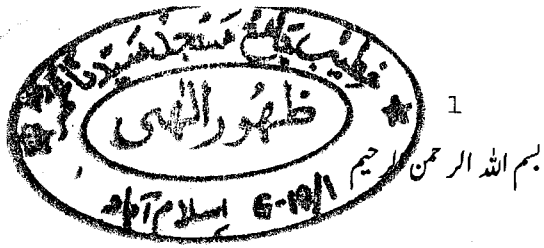 خطیب جامع مسجد سیدنا
ظہور الٰہی
G-10/1 اسلام آباد
1
بسم اللہ الرحمن الرحیم